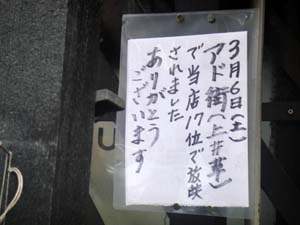 3月6日(土)
アド街(上井草)
で当店17位で放映
されました
ありがとう
ございます
U